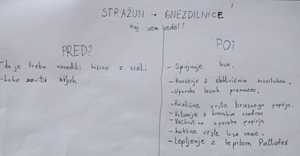 STRAŽUN → GNEZDILNICE!
Kaj sem vedel?
PRED?
- da je treba narediti hišico z vrati
- kako zaviti vijak
PO?
- Spajanje lesa.
- Brušenje z električnim brusilnikom.
- Uporaba lesnih
- Različne vrste brusnega papirja.
- Vrtanje z
- uporaba papirja
- kakšne vrste lesa vemo.
- Lepljenje z lepilom Pattafex